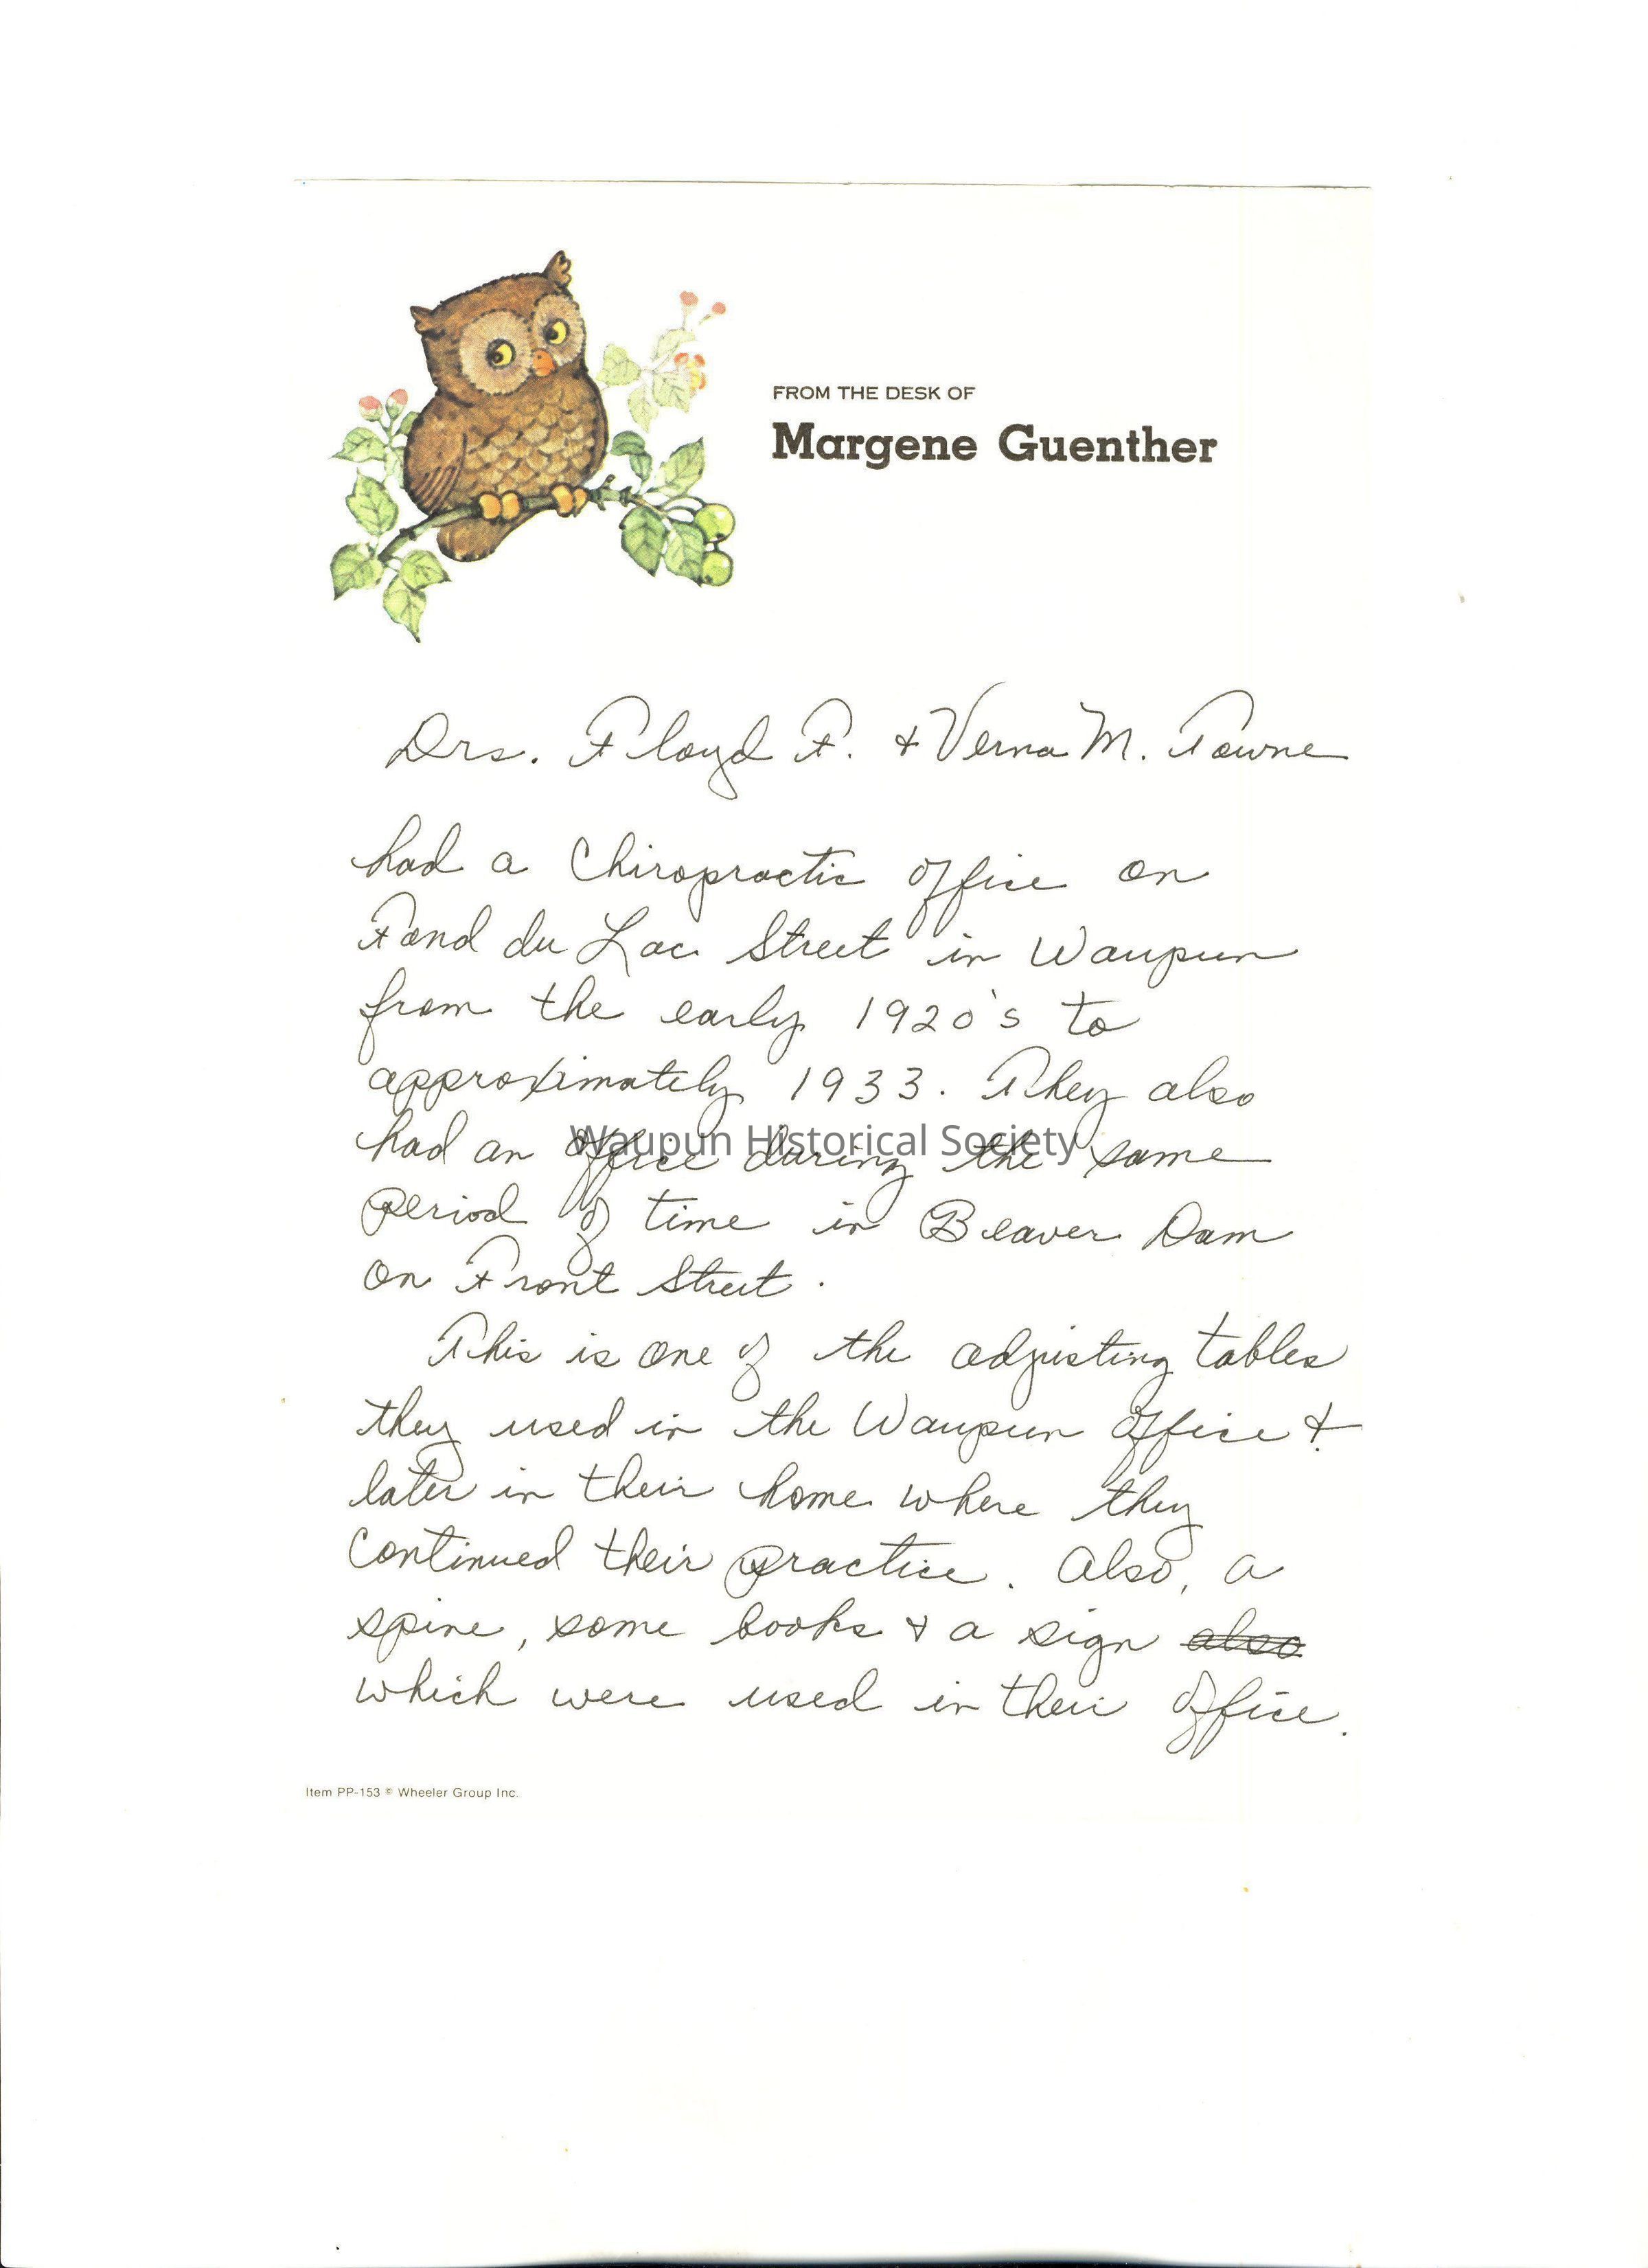 FROM THE DESK OF
Margene Guenther
Drs. Floyd F. & Verna M. Towne
had a Chiropractic office on
Fond du Lac Street in Waupun
from the early 1920's to
approximately 1933. They also
had an office during the same
Waupun Historical Society
period of time in Beaver Dam
on Front Street.
This is one of the adjusting tables
they used in the Waupun office &
later in their home where they
continued their practice. Also, a
spine, some books & a sign also
which were used in their office.
Item PP-153 © Wheeler Group Inc.